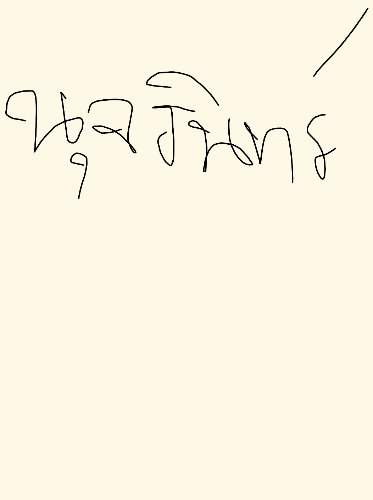 นุจรินทร์